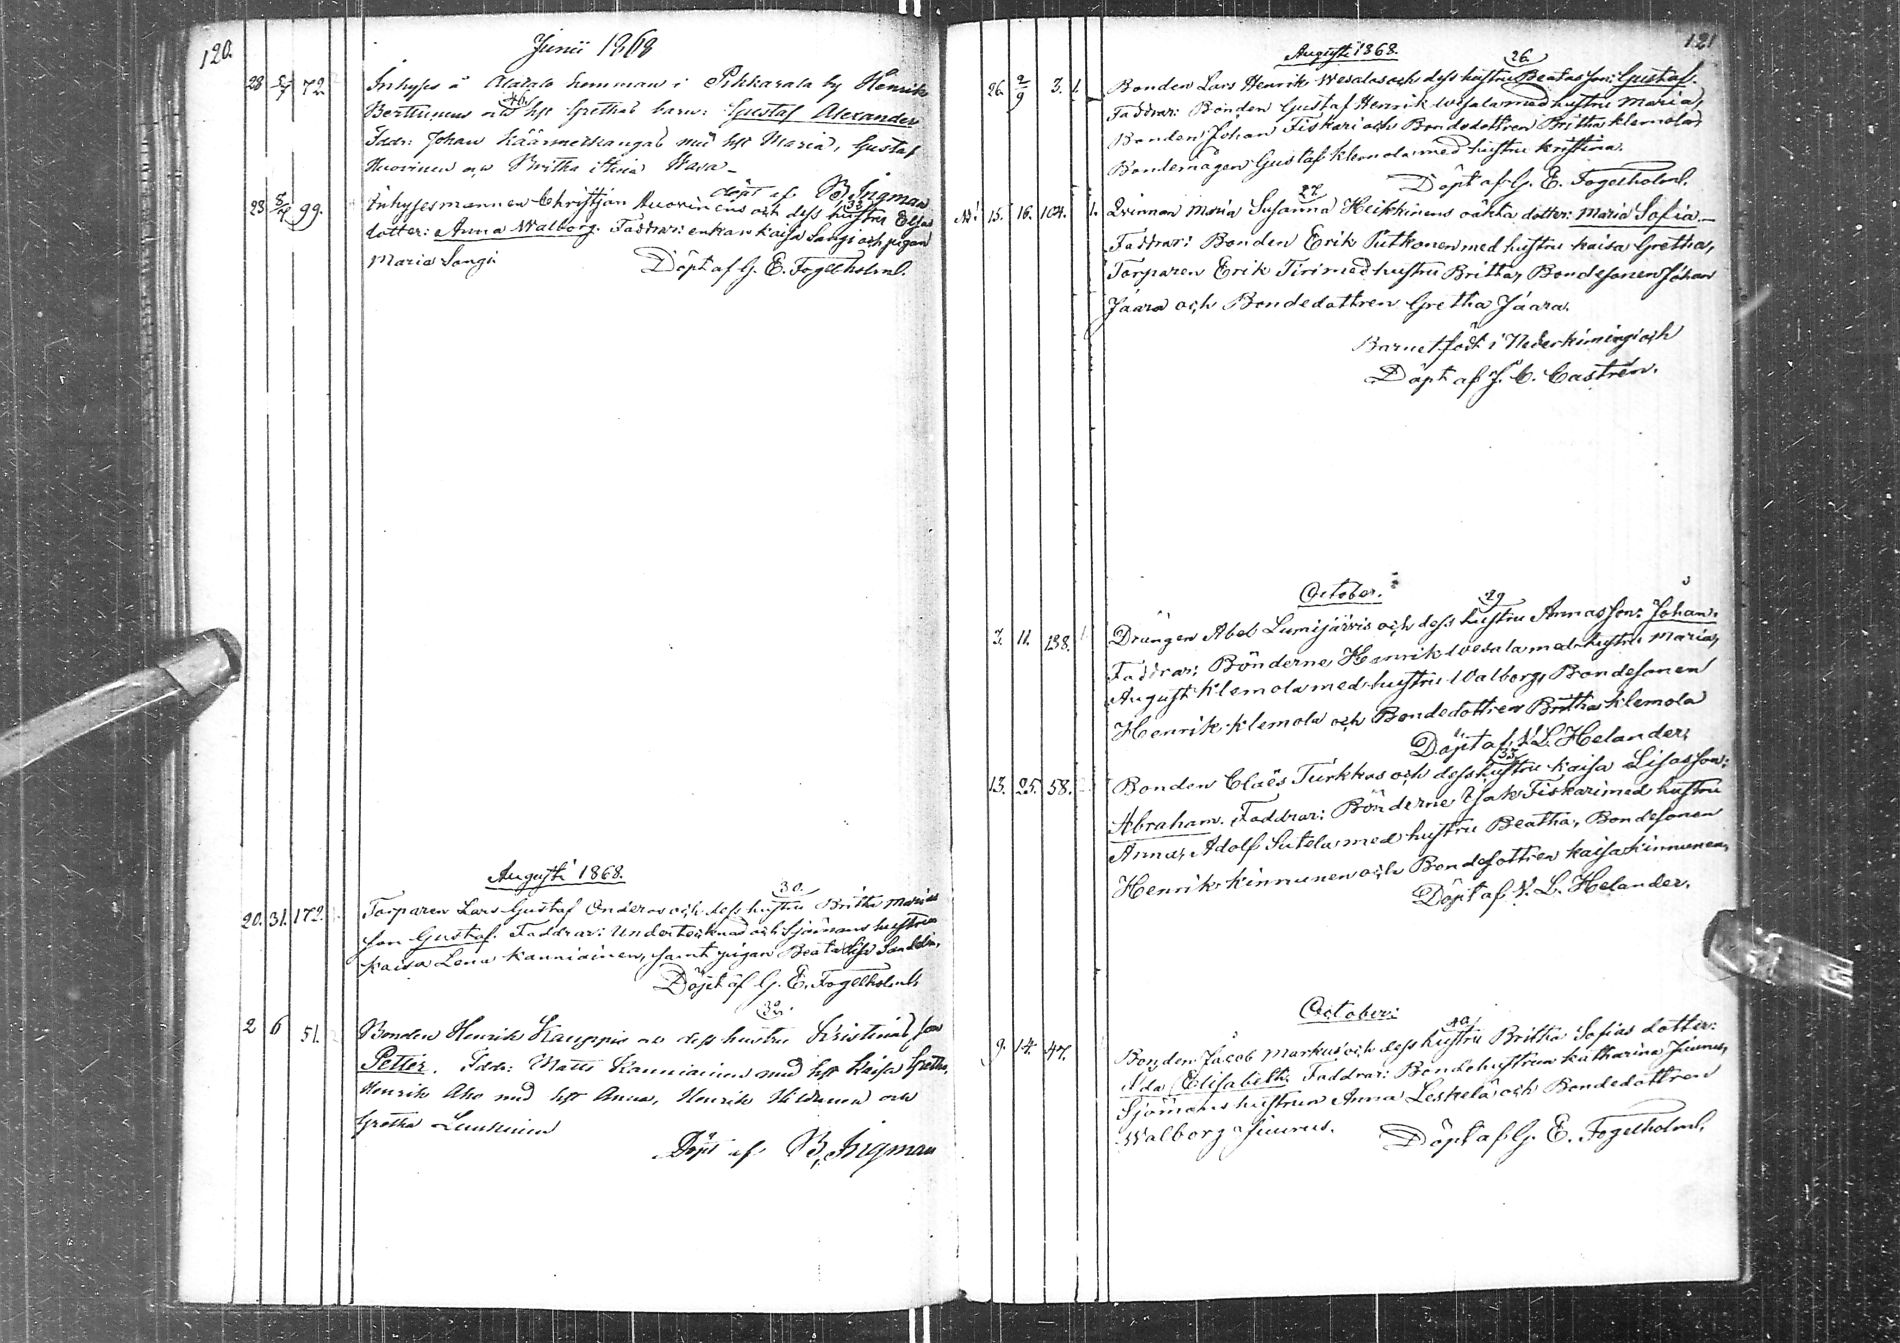 120.
Junii 1868
28 5/7 72 Inhyses å Alatalo hemman i Pikkarala by Henrik
46.
Berttunens och hst Grethas barn: Gustaf Alexander
Faddr: Johan Käärmeskangas med hst Maria, Gustaf
Huovinen och Britha Stina Wasa
Döpt af B. Ingman
28 5/7 99. Inhysesmannen Christjan Huovinens och dess hustru Elsas
33
dotter: Anna Walborg. Faddrar: enkan Kaisa Sangi och pigan
Maria Sangi. Döpt af G. E. Fogelholm.
Augusti 1868.
30.
20. 31. 172. Torparen Lars Gustaf Onderos och dess hustru Britha Marias
son Gustaf. Faddrar: Undertecknad och Sjömans hustrun
Kaisa Lena Kanniainen, samt pigan Beata Lisa Sandelin.
Döpt af G. E. Fogelholm.
32.
2 6 51. Bonden Henrik Kauppis och dess hustru Kristinas son
Petter. Faddr: Matts Kanniainens med hst Kaisa Gretha,
Henrik Aho med hst Anna, Henrik Hildunen och
Gretha Laukainen
Döpt af B. Ingman
121
Augusti 1868.
26.
26. 2/9 3. 1. Bonden Lars Henrik Wesalas och dess hustru Beatas son: Gustaf.
Faddrar: Bonden Gustaf Henrik Wesala med hustru Maria,
Bonden Johan Fiskari och Bondedottren Britha Klemola,
Bondemågen Gustaf Klemola med hustru Kristina.
Döpt af G. E. Fogelholm.
27.
15. 16. 104. 1. Qvinnan Maria Susanna Heikkinens oäkta dotter: Maria Sofia.
Faddrar: Bonden Erik Putkonen med hustru Kaisa Gretha,
Torparen Erik Tiri med hustru Britta, Bondesonen Johan
Jaara och Bondedottren Gretha Jaara.
Barnet född i Nederkiminge och
Döpt af J. C. Castrén.
October.
29
3. 11. 138. Drängen Abel Lumijärvis och dess hustru Annas son: Johan.
Faddrar: Bönderne Henrik Wesala med hustru Maria,
August Klemola med hustru Walborg, Bondesonen
Henrik Klemola och Bondedottren Britha Klemola
Döpt af N. L. Helander.
33.
13. 25. 58. Bonden Claës Turkkas och dess hustru Kaisa Lisas son:
Abraham. Faddrar: Bönderne Isak Fiskari med hustru
Anna, Adolf Sutela med hustru Beatha, Bondesonen
Henrik Kinnunen och Bondedottren Kaisa Kinnunen.
Döpt af N. L. Helander.
October:
40.
9. 14. 47. Bonden Jacob Markus och dess hustru Britha Sofias dotter:
Ida Elisabeth. Faddrar: Bondehustrun Katharina Juurus,
Sjömans hustrun Anna Leskelä och Bondedottren
Walborg Juurus. Döpt af G. E. Fogelholm.